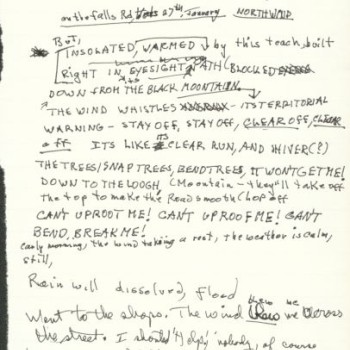 on the falls Rd, 27th, January NORTHWIND
But,
INSOLATED, WARMED by this teach, built
Right IN its EYESIGHT PATH BLOCKED
DOWN FROM THE BLACK MOUNTAIN.
"THE WIND WHISTLES - ITS TERRITORIAL
WARNING - STAY OFF, STAY OFF, CLEAR OFF, CLEAR
OFF ITS LIKE ITS CLEAR RUN, AND SHIVER(?)
THE TREES/SNAP TREES, BEND TREES, IT WONT GET ME!
DOWN TO THE LOUGH, (Mountain - they'll take off
The top to make the Road smooth (hop off
CAN'T UPROOT ME! CAN'T UPROOF ME! CAN'T
BEND, BREAK ME!
early morning, the wind taking a rest, The weather is calm,
still,
Rain will dissolved, Flood
Went to the shops. The wind blew me across
the street. I should "help" nobody, of course